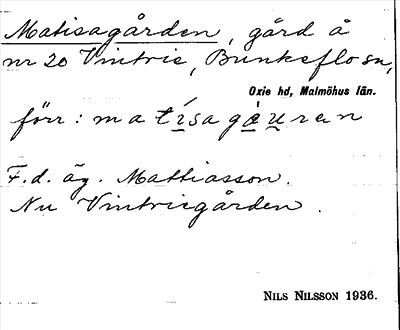 Matisagården, gård å
nr 20 Vintrie, Bunkeflo sn,
Oxie hd, Malmöhus län.
förr: matísagàuran
F.d. äg. Mattiasson.
Nu Vintriegården.
NILS NILSSON 1936.